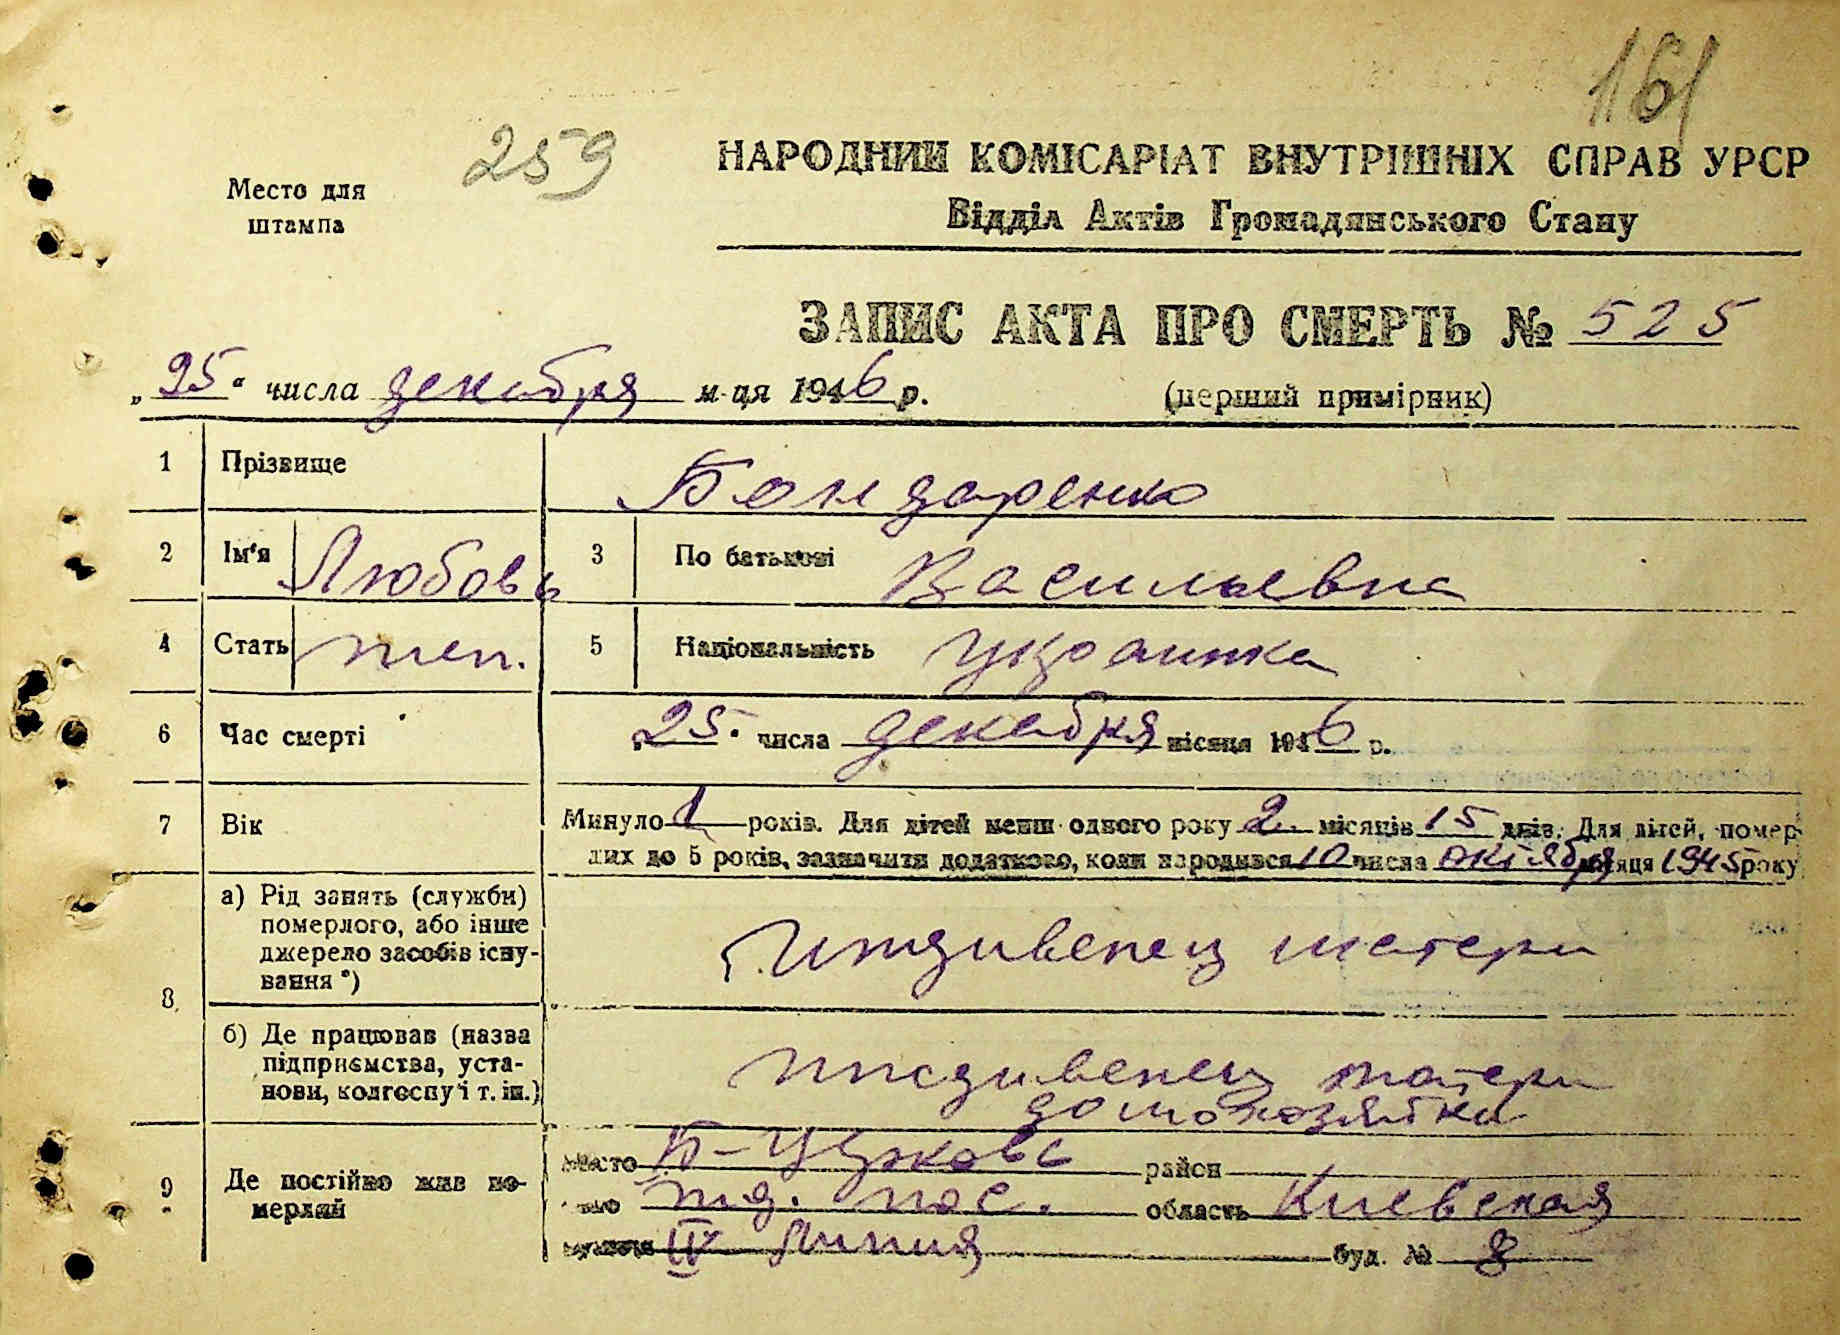 161
259
НАРОДНИЙ КОМІСАРІАТ ВНУТРІШНІХ СПРАВ УРСР
Место для
штампа
Відділ Актів Громадянського Стану
ЗАПИС АКТА ПРО СМЕРТЬ № 525
„25“ числа декабря м-ця 1946 р. (перший примірник)
1 Прізвище Бондаренко
2 Ім'я Любовь 3 По батькові Васильевна
4 Стать жен. 5 Національність Украинка
6 Час смерті „25“ числа декабря місяця 1946 р.
7 Вік Минуло 1 років. Для дітей менш одного року 2 місяців 15 днів. Для дітей, помер-
лих до 5 років, зазначити додатково, коли народився 10 числа октября місяця 1945 року
8 а) Рід занять (служби)
померлого, або інше
джерело засобів існу-
вання*) Иждивенец матери
б) Де працював (назва
підприємства, уста-
нови, колгоспу і т. ін.) иждивенец матери
домохозяйки
9 Де постійно жив по-
мерлий
місто Б-Церковь район
жд. пос. область Киевская
IV Линия буд. № 8